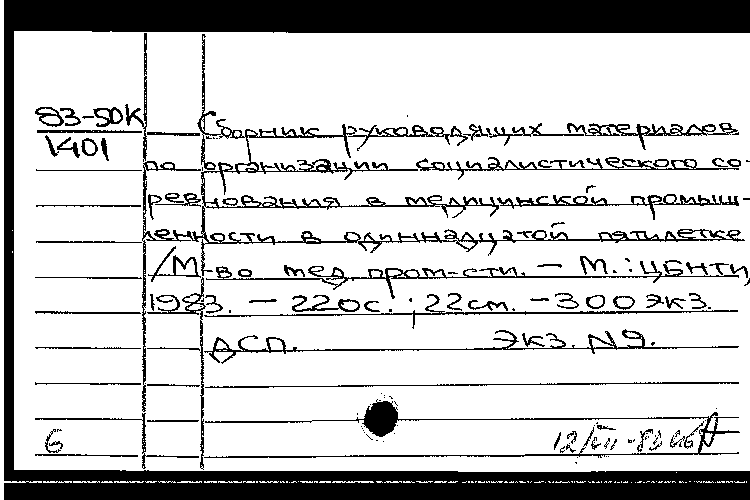 83-50К
1401
Сборник руководящих материалов
по организации социалистического со-
ревнования в медицинской промыш-
ленности в одиннадцатой пятилетке
/М-во мед. пром-сти. – М.: ЦБНТИ,
1983. – 220с.; 22см. – 300 экз.
ДСП. Экз. N9.
6